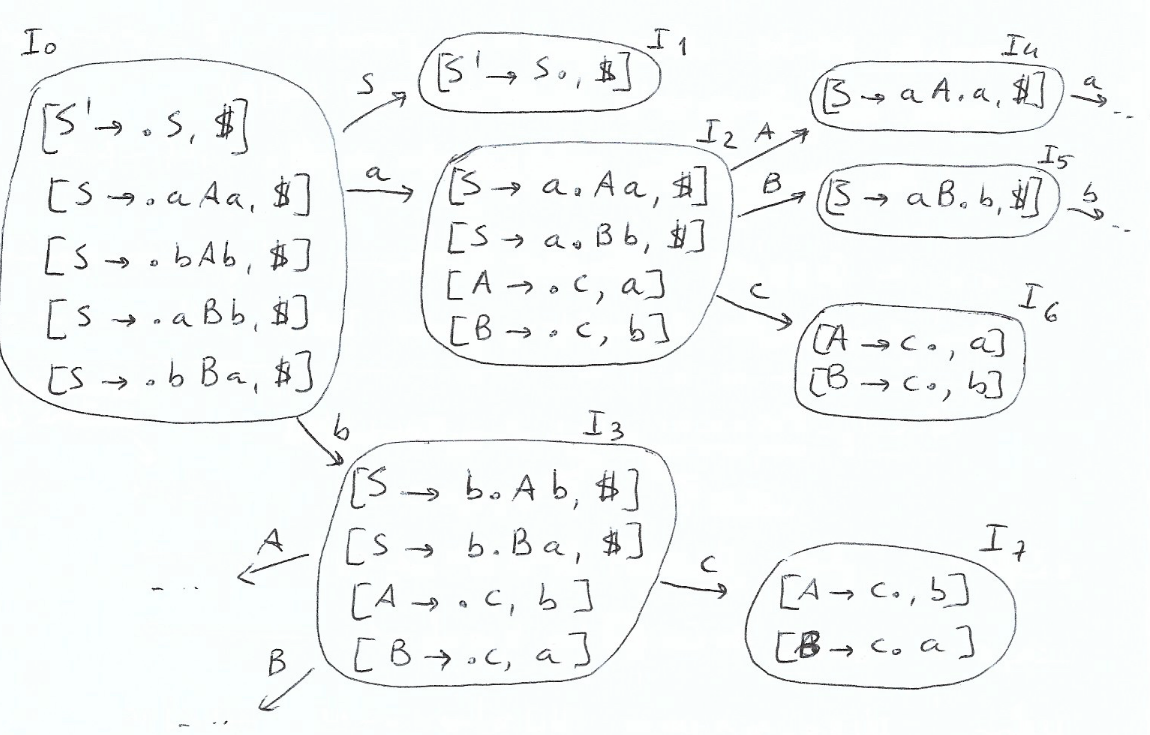 I0
[S' → . S, $]
[S → . a A a, $]
[S → . b A b, $]
[S → . a B b, $]
[S → . b B a, $]
S
I1
[S' → S ., $]
a
I2
[S → a . A a, $]
[S → a . B b, $]
[A → . c, a]
[B → . c, b]
A
I4
[S → a A . a, $]
a
..
B
I5
[S → a B . b, $]
b
..
c
I6
[A → c ., a]
[B → c ., b]
b
I3
[S → b . A b, $]
[S → b . B a, $]
[A → . c, b]
[B → . c, a]
A
...
B
...
c
I7
[A → c ., b]
[B → c . a]